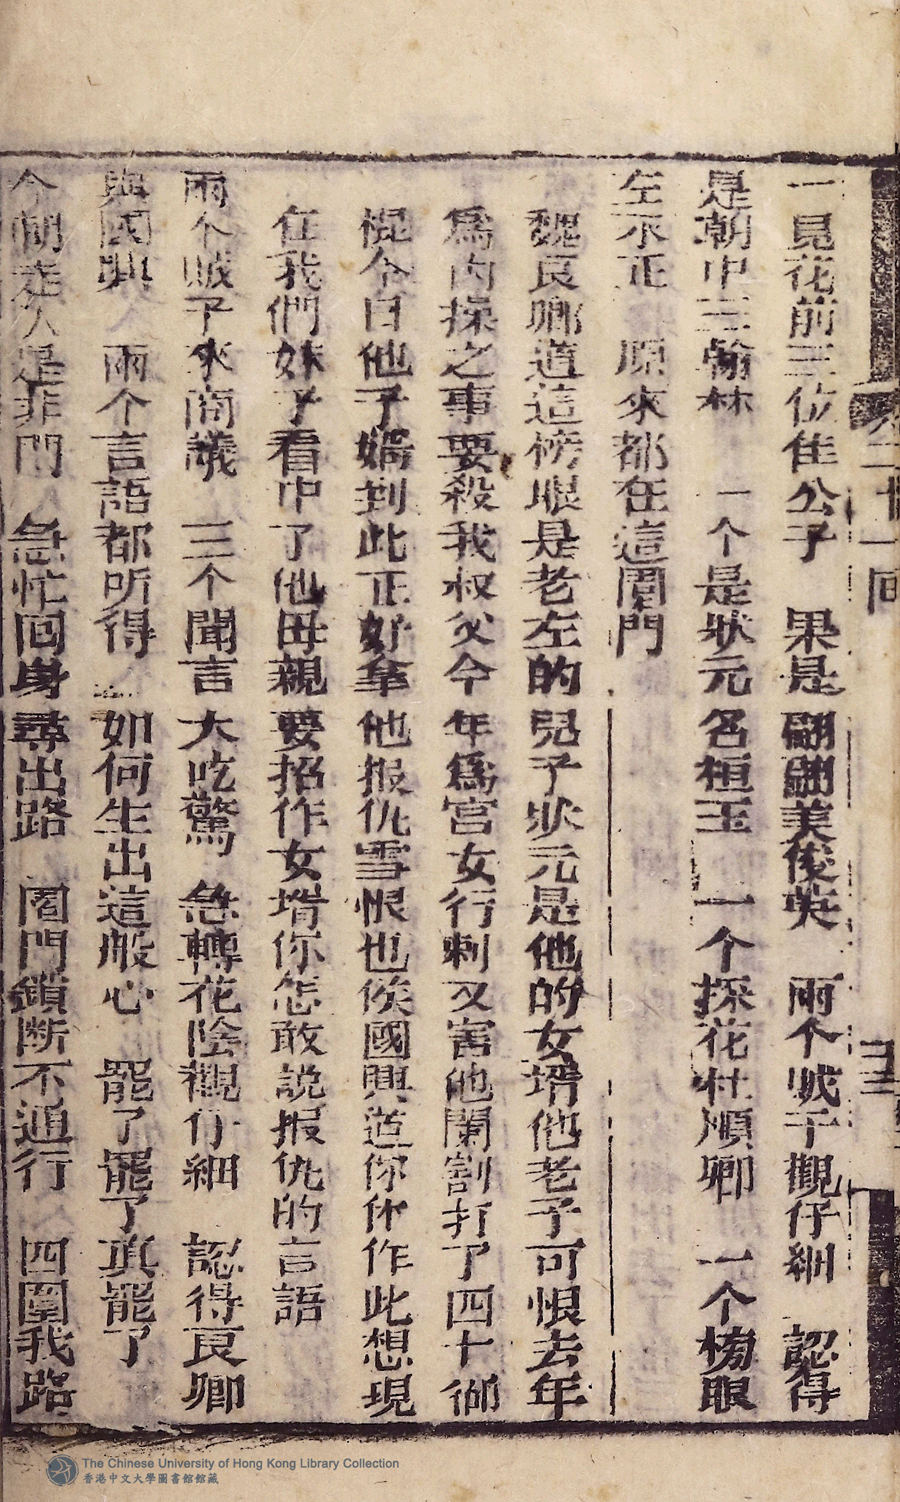 一見花前三位佳公子　果是翩翩美俊英　兩个賊子觀仔細　認得
是朝中三翰林　一个是狀元名桓玉　一个探花杜順卿　一个榜眼
左不正　原來都在這園門
魏良卿道這榜眼是老左的兒子狀元是他的女壻他老子可恨去年
為內操之事要殺我叔父今年為宮女行刺又害他闌割打了四十御
棍今日他子婿到此正好拿他报仇雪恨也侯國興道你休作此想現
在我們妹子看中了他母親要招作女壻你怎敢說报仇的言語
兩个賊子來商議　三个聞言大吃驚　急轉花陰觀仔細　認得良卿
與國興　兩个言語都听得　如何生出這般心　罷了罷了真罷了
今朝走入是非門　急忙回身尋出路　園門鎖断不通行　四圍我路
二十一回
The Chinese University of Hong Kong Library Collection
香港中文大學圖書館館藏